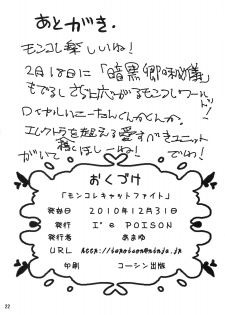 あとがき.
モンコレ楽しいね!
2月18日に「暗黒郷の秘儀」
もでるしさらに広がるモンコレワールド!
ロイヤルハニーちゃんくんかくんか。
エレクトラを超える愛すべきユニット
がいて殺ほしーね! でわ!
おくづけ
「モンコレキャットファイト」
発効日 2010年12月31日
発行 I'm POISON
発行者 あまゆ
URL
印刷 コーシン出版
22